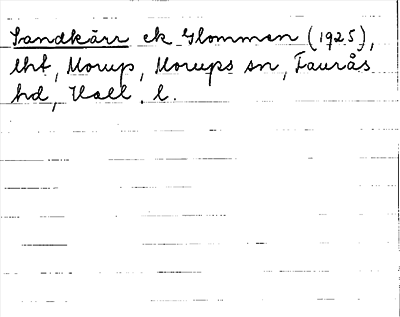 Sandkärr ek Glommen (1925),
lht, Morup, Morups sn, Faurås
hd, Hall. l.